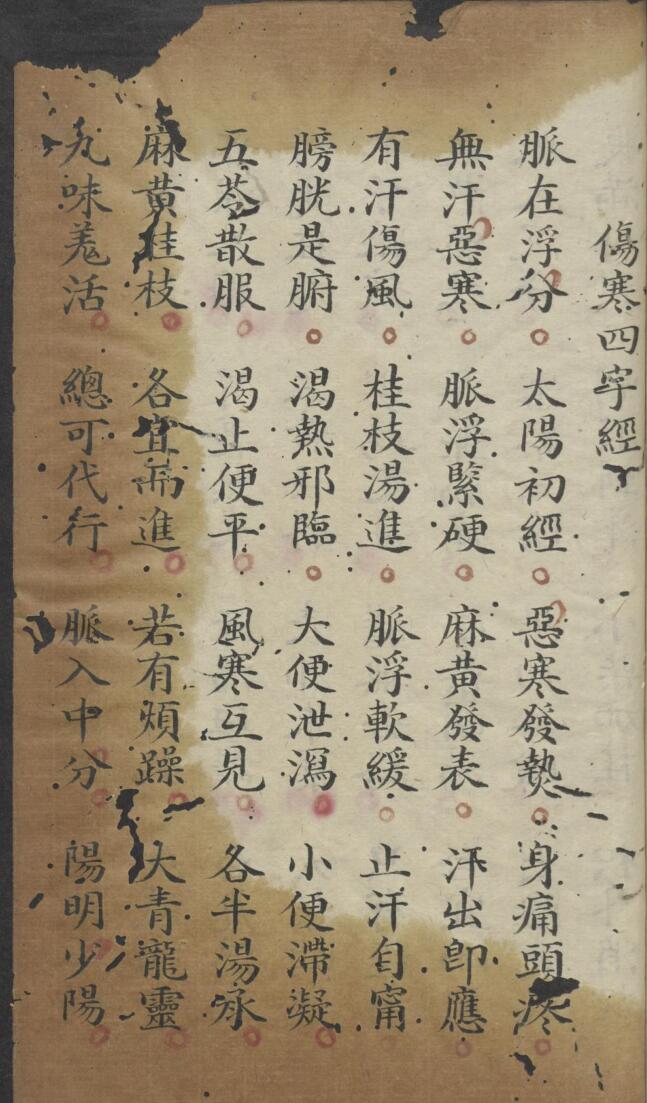 傷寒四字經
脈在浮分 太陽初經 惡寒發熱 身痛頭疼
無汗惡寒 脈浮緊硬 麻黃發表 汗出即應
有汗傷風 桂枝湯進 脈浮軟緩 止汗自甯
膀胱是腑 渴熱邪臨 大便泄瀉 小便滯凝
五苓散服 渴止便平 風寒互見 各半湯
麻黃桂枝 各宜 進 若有煩躁 大青龍靈
九味羌活 總可代行 脈入中分 陽明少陽